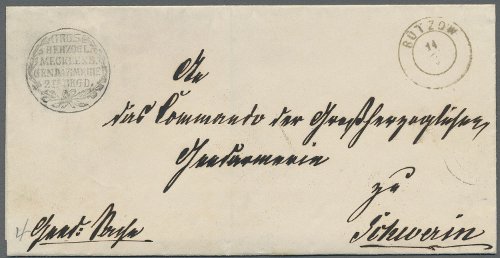 GROS
HERZOGL.
MECKLENB.
GENDARMERIE
BÜTZOW
14
An
das Commando der Großherzoglichen
Gendarmerie
zu
Schwerin
Gend: Sache